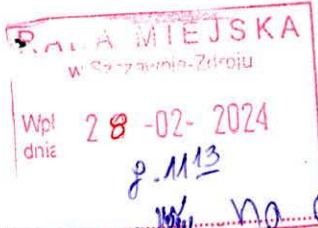 RADA MIEJSKA
w Szczawnie-Zdroju
Wpł
dnia
28 -02- 2024
g. 11 13